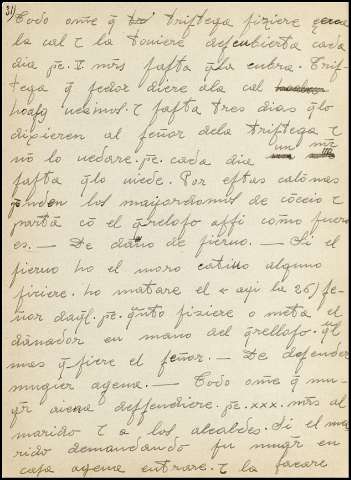 31)
Todo om̃e q̃ triftega fiziere cerca
la cal τ la touiere defcubierta cada
dia pe. V. mr̃s fafta q̃la cubra. Trif-
tega q̃ fedor diere ala cal
hoaſs uezinos. τ fafta tres dias q̃lo
dixieren al feñor dela triftega τ
nõ lo uedare. pe. cada dia un mr̃
fafta q̃lo uiede. Por eftas calonnas
prinden los maiordomos de cõceio τ
partã cõ el q̃relofo affi como fuero
es. — De daño de fieruo. — Si el
fieruo ho el moro catiuo alguno
firiere. ho matare el (ayi la 26) fe-
ñor dayl. pe. q̃nto fiziere o meta el
dañador en mano del q̃rellofo. q̃l
mas q̃fiere el feñor. — De defender
mugier agena. — Todo om̃e q̃ mu-
gr̃ aiena deffendiere. pe. xxx. mr̃s al
marido τ a los alcaldes. Si el ma
rido demandando fu mugr̃ en
cafa agena entrare. τ la facare